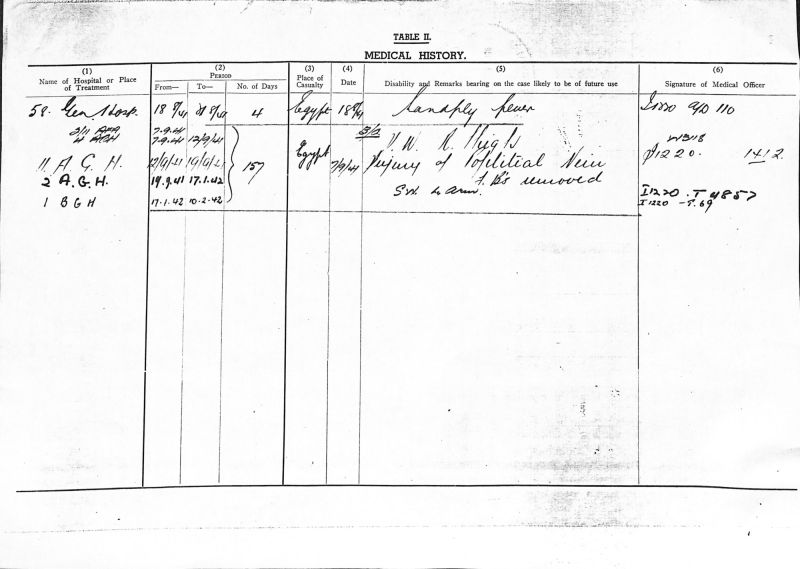 TABLE II.
MEDICAL HISTORY.
(1) (2) (3) (4) (5) (6)
Name of Hospital or Place of Treatment
PERIOD
From— To— No. of Days
Place of Casualty
Date
Disability and Remarks bearing on the case likely to be of future use
Signature of Medical Officer
58. Gen Hosp. 18 8/41 21 8/41 4 Egypt 18 8/41 Sandfly fever I1220 A/D 110
7.9.41
4 AGH 7.9.41 12/9/41 3/2 G.S.W. R. Thigh
11 A G H. 12/9/41 19/9/41 157 Egypt 7/9/41 Injury of Popliteal Vein I1220. 1412
2 A.G.H. 19.9.41 17.1.42 F.B's removed
S.W. L Arm. I1220 . T 4857
1 B G H 17.1.42 10.2.42 I1220 – T.69